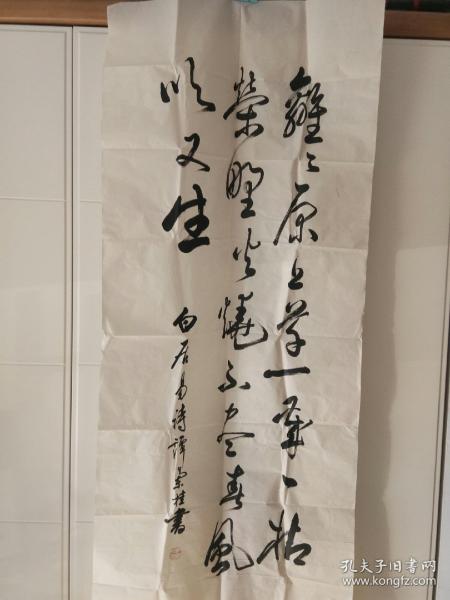 離々原上草一歲一枯
榮野火燒不盡春風
吹又生
白居易詩譚桂書
孔夫子旧书网
www.kongfz.com